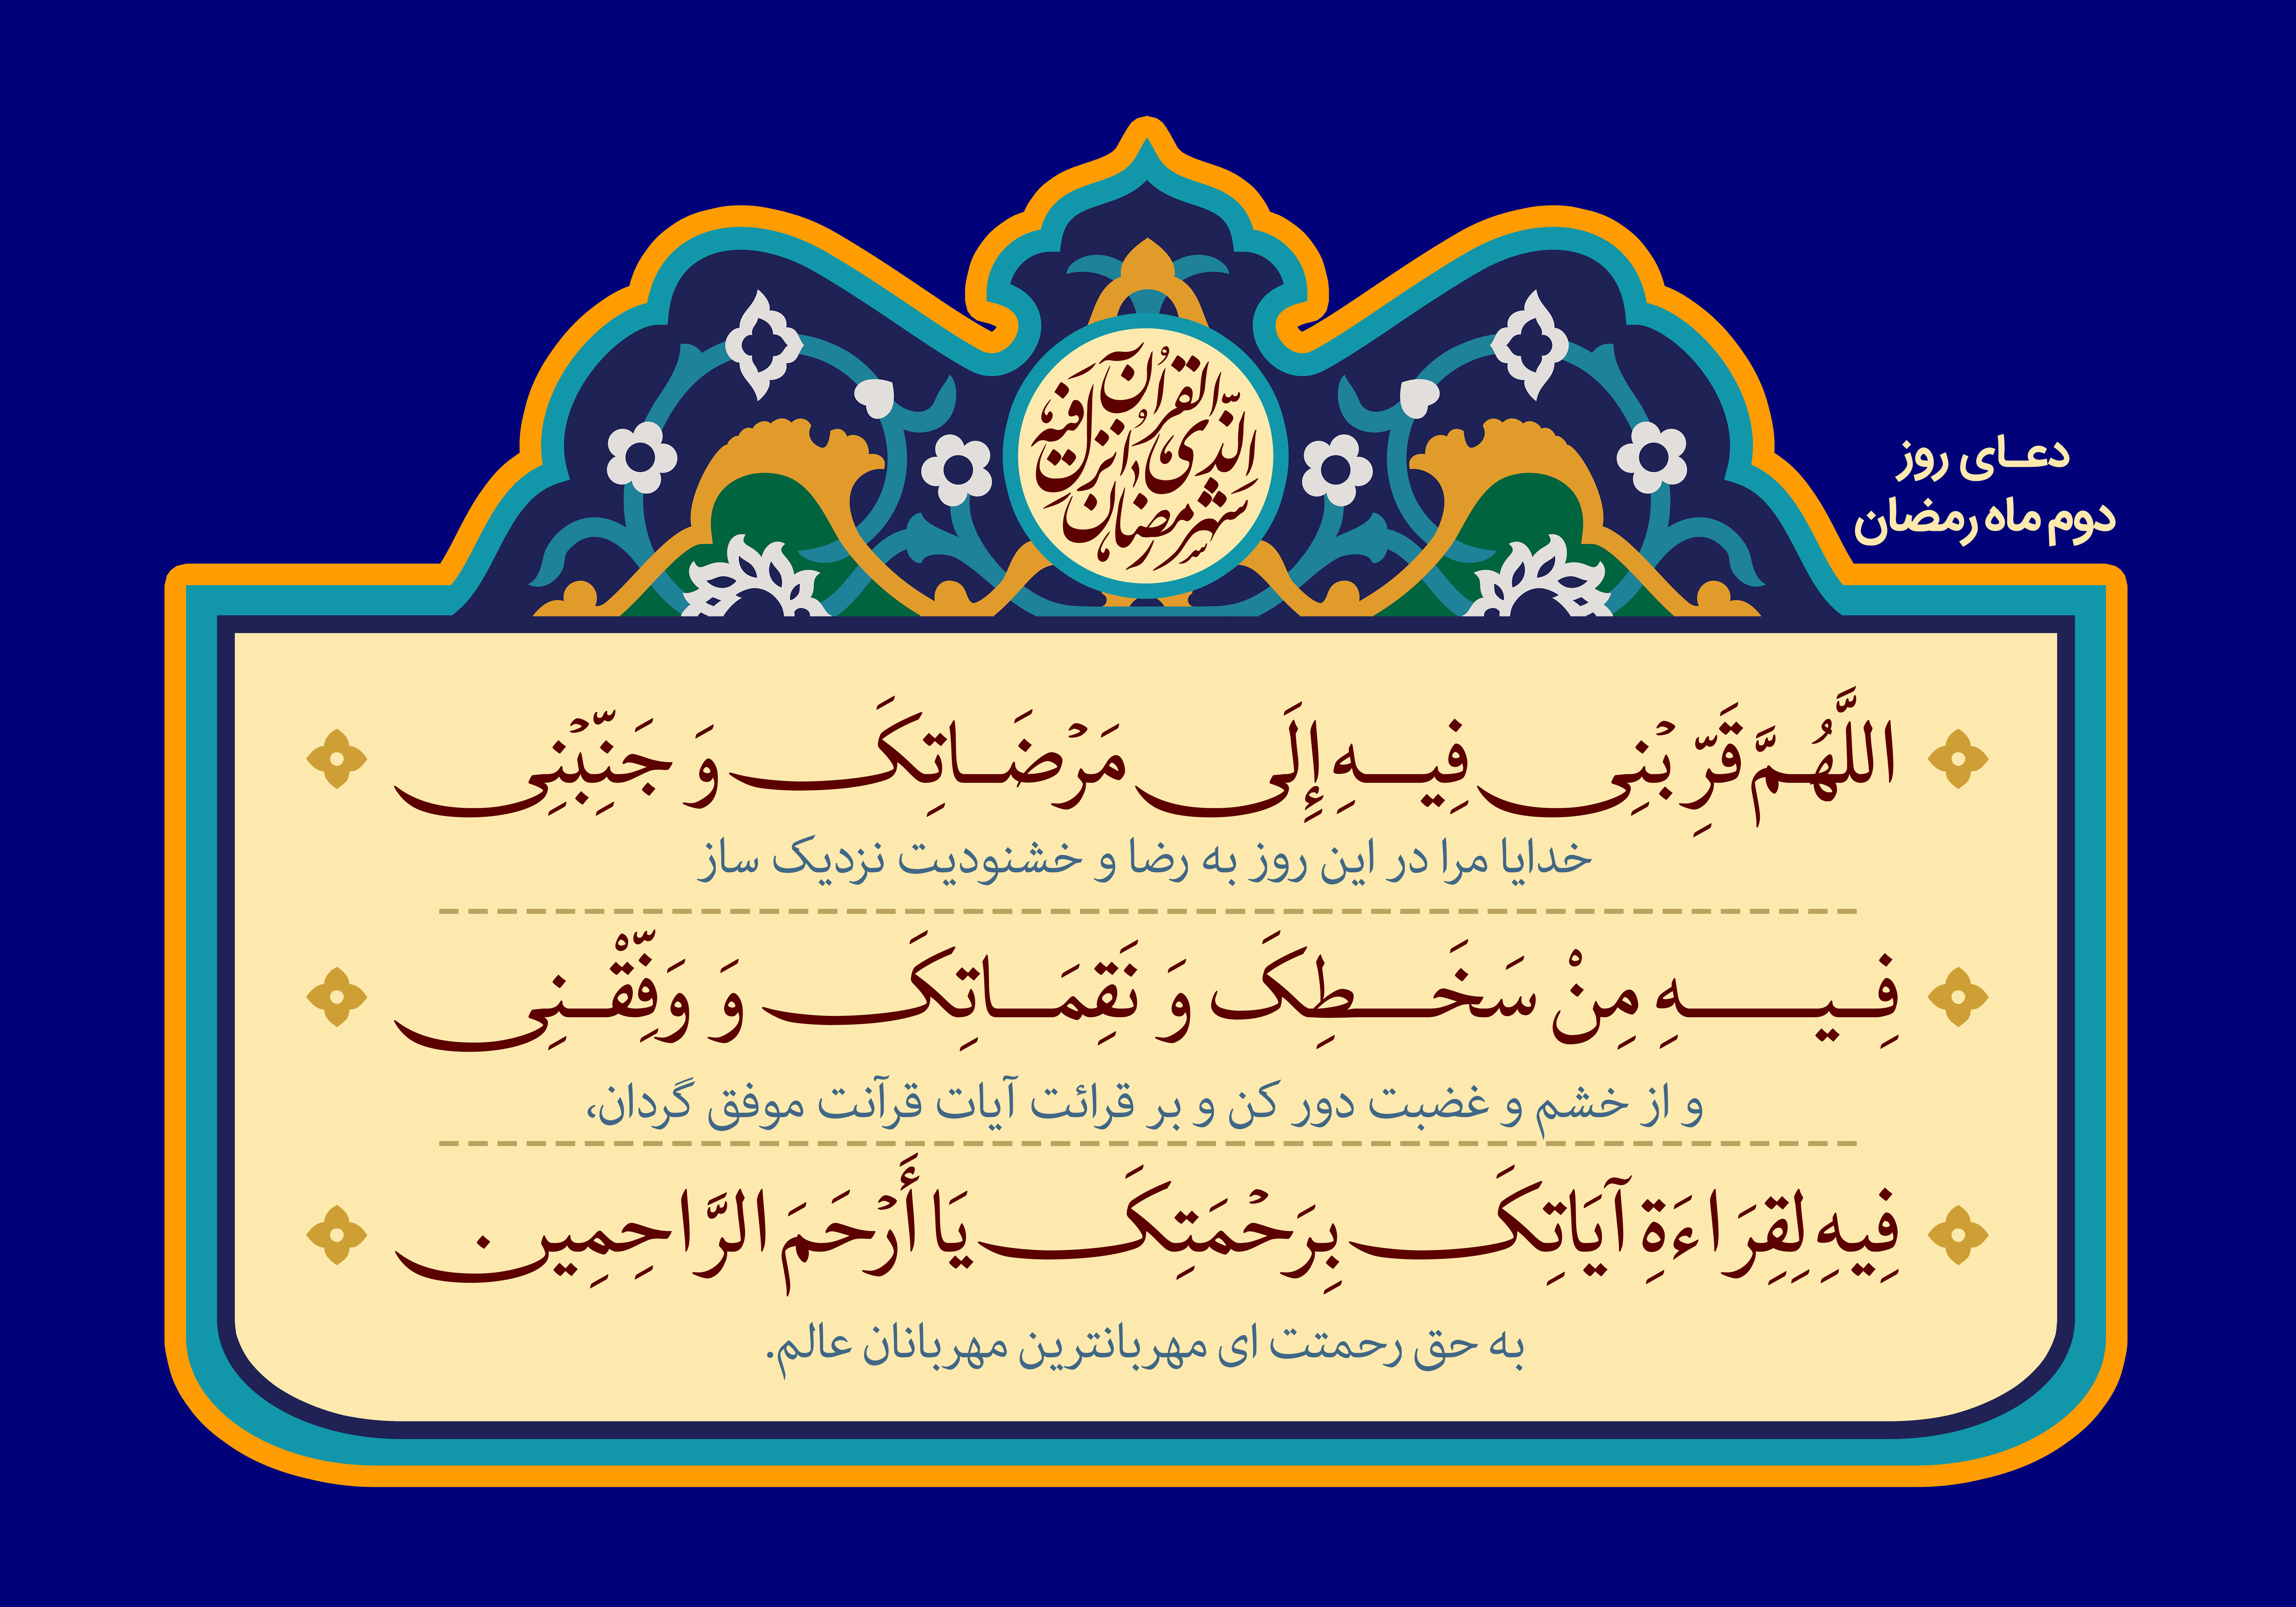 شَهْرُ رَمَضَانَ
الَّذِی أُنْزِلَ فِیهِ
الْقُرْآنُ
دعـای روز
دوم ماه رمضان
اللَّهُمَّ قَرِّبْنِی فِیهِ إِلَی مَرْضَاتِکَ وَ جَنِّبْنِی
خدایا مرا در این روز به رضا و خشنودیت نزدیک ساز
فِیهِ مِنْ سَخَطِکَ وَ نَقِمَاتِکَ وَ وَفِّقْنِی
و از خشم و غضبت دور کن و بر قرائت آیات قرآنت موفق گردان،
فِیهِ لِقِرَاءَةِ آیَاتِکَ بِرَحْمَتِکَ یَا أَرْحَمَ الرَّاحِمِین .
به حق رحمتت ای مهربانترین مهربانان عالم.